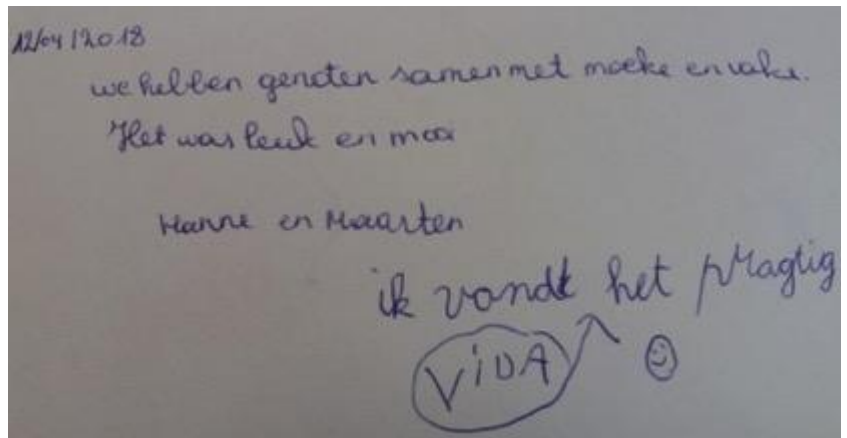 12/04/2018
we hebben genoten samen met moeke en vake.
Het was leuk en mooi
Hanne en Maarten
ik vondt het pragtig
ViDA